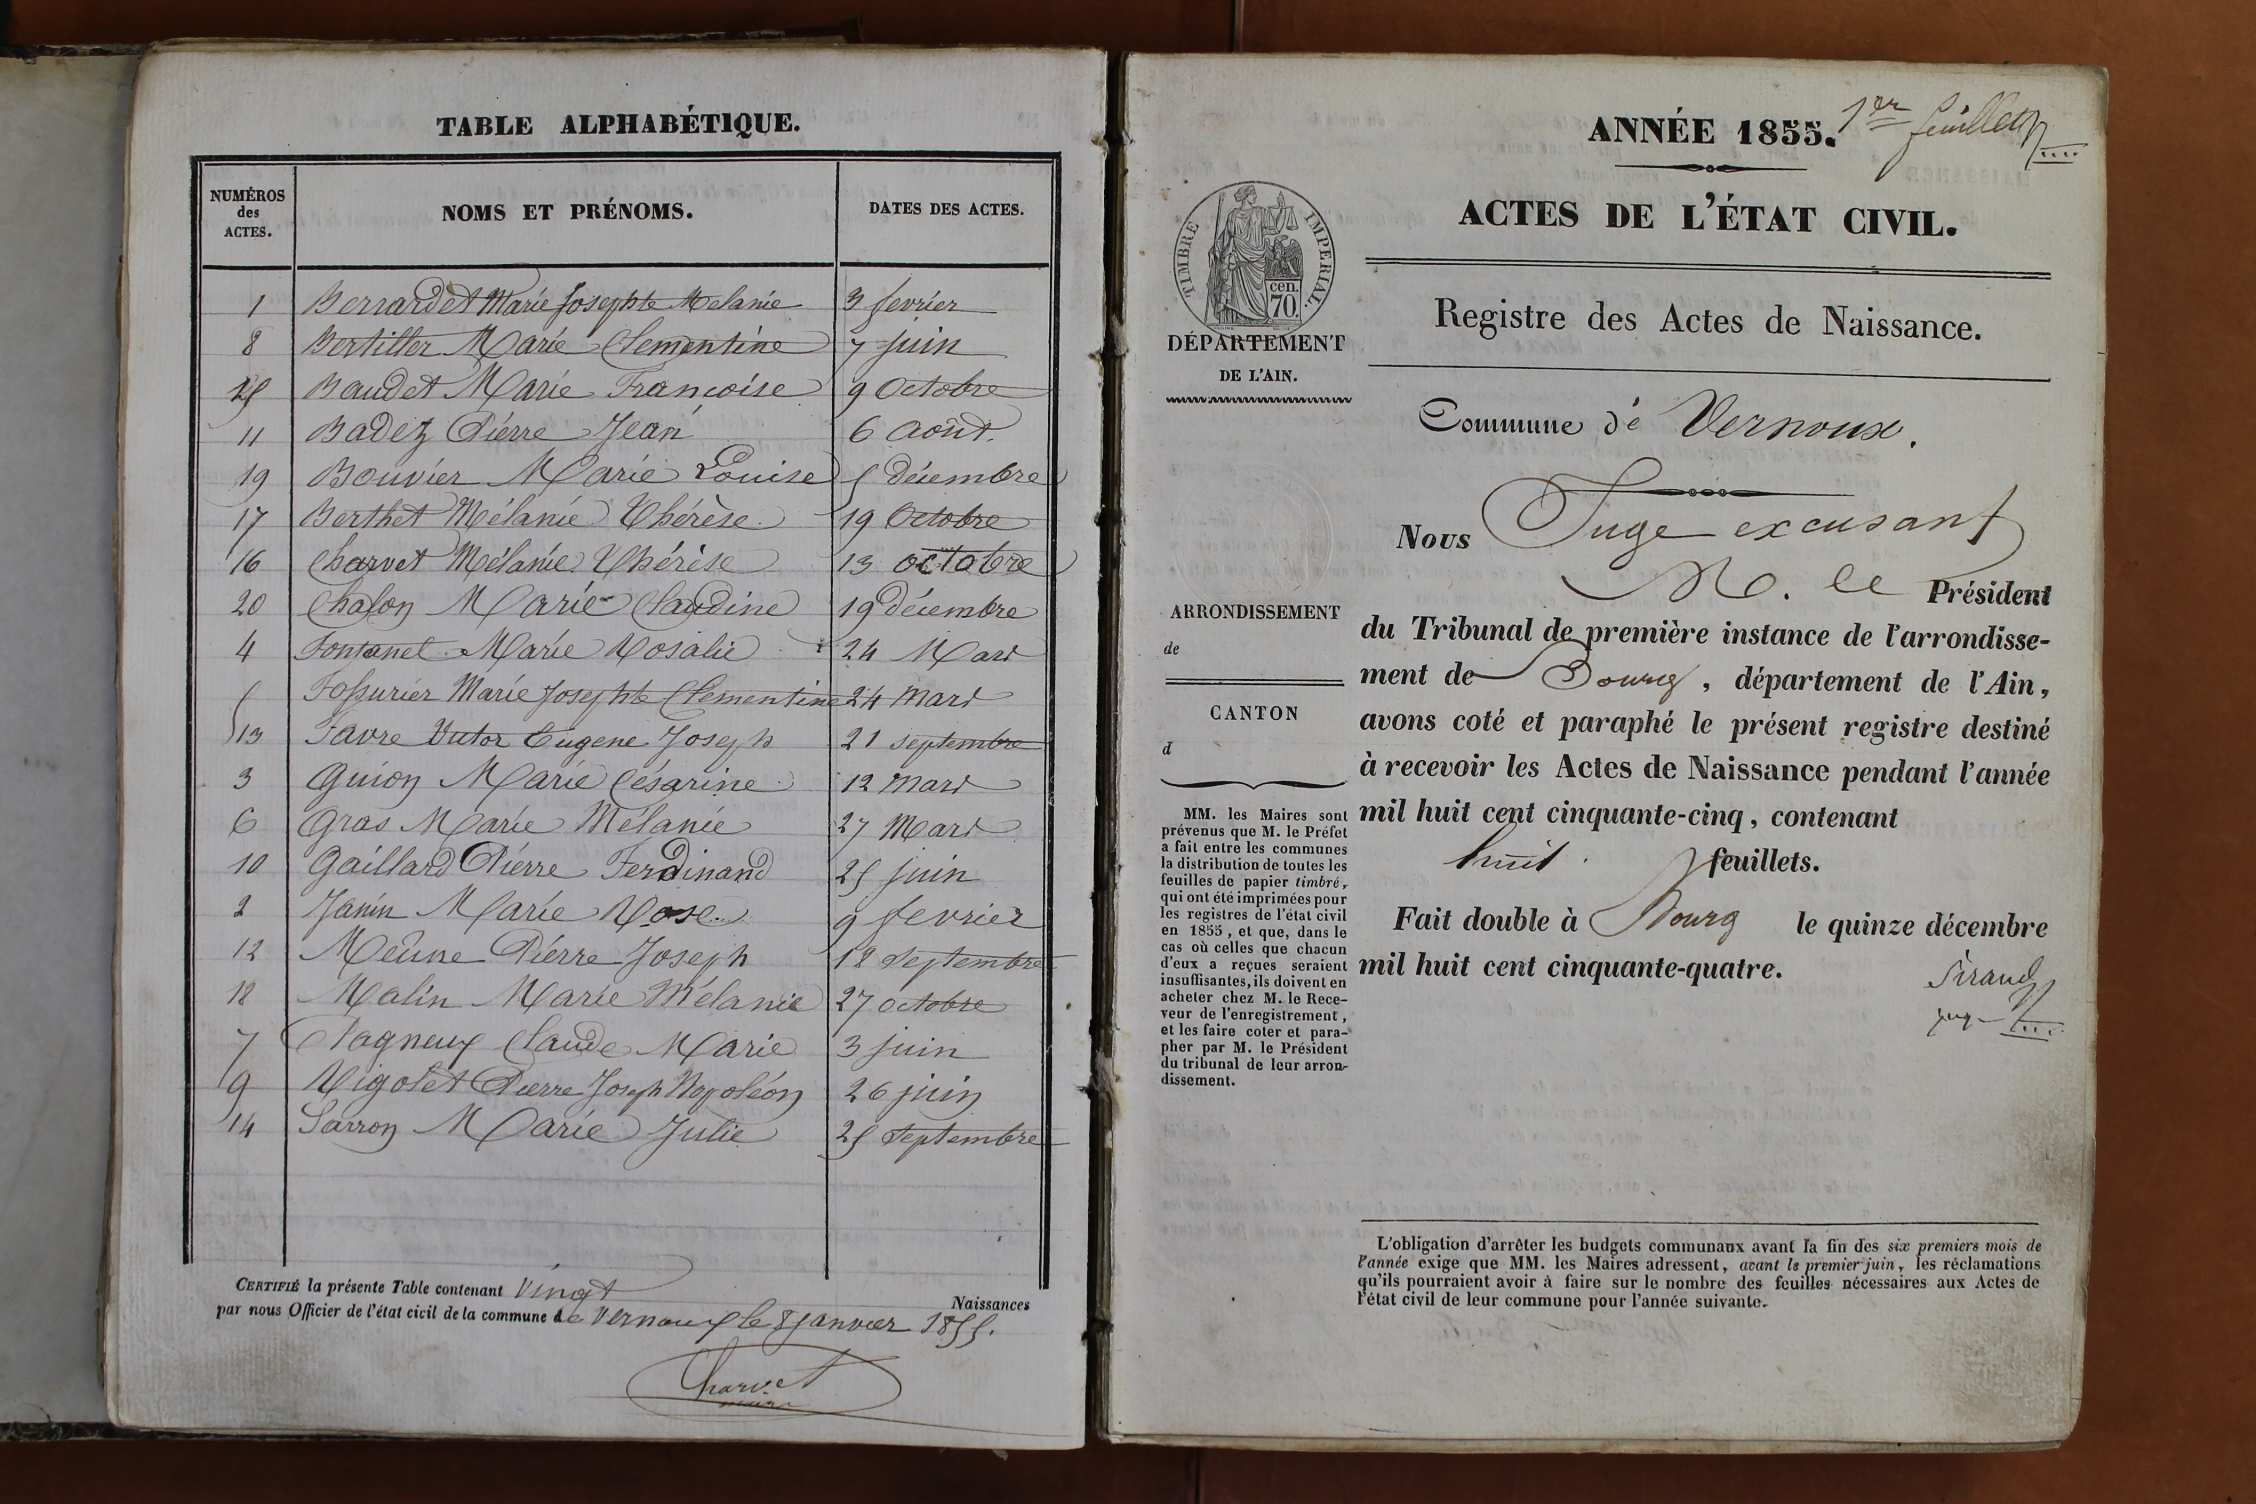 TABLE ALPHABÉTIQUE.
NUMÉROS des ACTES. NOMS ET PRÉNOMS. DATES DES ACTES.
1 Berrardet Marie Josephte Melanie 3 fevrier
8 Bertiller Marie Clementine 7 juin
15 Baudet Marie Françoise 9 Octobre
11 Badez Pierre Jean 6 Août.
19 Bouvier Marie Louise 5 décembre
17 Berthet Mélanie Thérèse 19 Octobre
16 Charvet Mélanie Thérèse 13 octobre
20 Chalon Marie Claudine 19 décembre
4 Fontanel Marie Rosalie 24 Mars
5 Fossurier Marie Josephte Clementine 24 Mars
13 Favre Victor Eugene Joseph 21 septembre
3 Guion Marie Césarine 12 Mars
6 Gras Marie Mélanie 27 Mars
10 Gaillard Pierre Ferdinand 25 juin
2 Janin Marie Rose 9 fevrier
12 Meûne Pierre Joseph 12 septembre
18 Malin Marie Mélanie 27 octobre
7 Pagneux Claude Marie 3 juin
9 Rigolet Pierre Joseph Napoléon 26 juin
14 Sarron Marie Julie 25 septembre
CERTIFIÉ la présente Table contenant Vingt
Naissances
par nous Officier de l'état civil de la commune de Vernoux le 8 janvier 1855.
Charvet
maire
ANNÉE 1855. 1er feuillet
ACTES DE L'ÉTAT CIVIL.
TIMBRE IMPERIAL.
cen.
70.
DÉPARTEMENT
DE L'AIN.
Registre des Actes de Naissance.
Commune de Vernoux.
Nous Juge excusant
M. le Président
du Tribunal de première instance de l'arrondisse-
ment de Bourg, département de l'Ain,
avons coté et paraphé le présent registre destiné
à recevoir les Actes de Naissance pendant l'année
mil huit cent cinquante-cinq, contenant
huit feuillets.
Fait double à Bourg le quinze décembre
mil huit cent cinquante-quatre.
Sirand
juge
ARRONDISSEMENT
de
CANTON
d
MM. les Maires sont
prévenus que M. le Préfet
a fait entre les communes
la distribution de toutes les
feuilles de papier timbré,
qui ont été imprimées pour
les registres de l'état civil
en 1855, et que, dans le
cas où celles que chacun
d'eux a reçues seraient
insuffisantes, ils doivent en
acheter chez M. le Rece-
veur de l'enregistrement,
et les faire coter et para-
pher par M. le Président
du tribunal de leur arron-
dissement.
L'obligation d'arrêter les budgets communaux avant la fin des six premiers mois de
l'année exige que MM. les Maires adressent, avant le premier juin, les réclamations
qu'ils pourraient avoir à faire sur le nombre des feuilles nécessaires aux Actes de
l'état civil de leur commune pour l'année suivante.